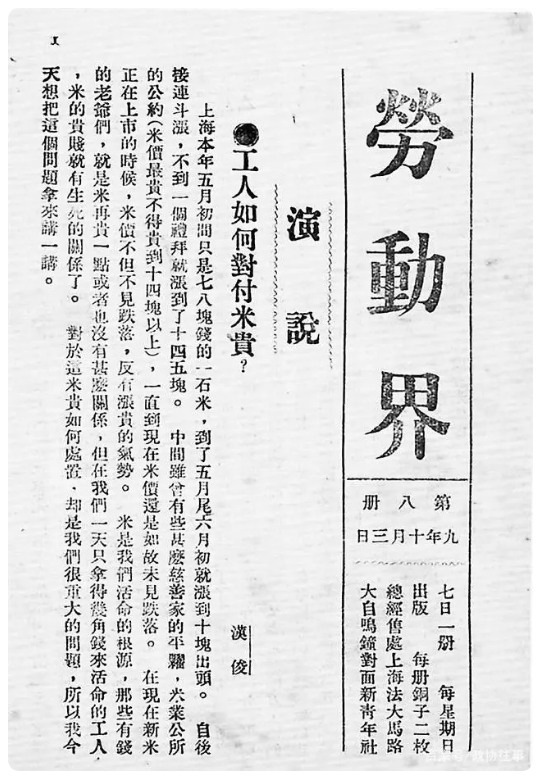 勞動界
第八册
九年十月三日
七日一册　每星期日
出版　每册銅子二枚
總經售處上海法大馬路
大自鳴鐘對面新青年社
演說
●工人如何對付米貴？
漢俊
上海本年五月初間只是七八塊錢的一石米，到了五月尾六月初就漲到十塊出頭。　自後
接連斗漲，不到一個禮拜就漲到了十四五塊。　中間雖曾有些甚麽慈善家的平糶，米業公所
的公約（米價最貴不得貴到十四塊以上），一直到現在米價還是如故未見跌落。　在現在新米
正在上市的時候，米價不但不見跌落，反有漲貴的氣勢。　米是我們活命的根源，那些有錢
的老爺們，就是米再貴一點或者也沒有甚麽關係，但在我們一天只拿得幾角錢來活命的工人
，米的貴賤就有生死的關係了。　對於這米貴如何處置，却是我們很重大的問題，所以我今
天想把這個問題拿來講一講。
1